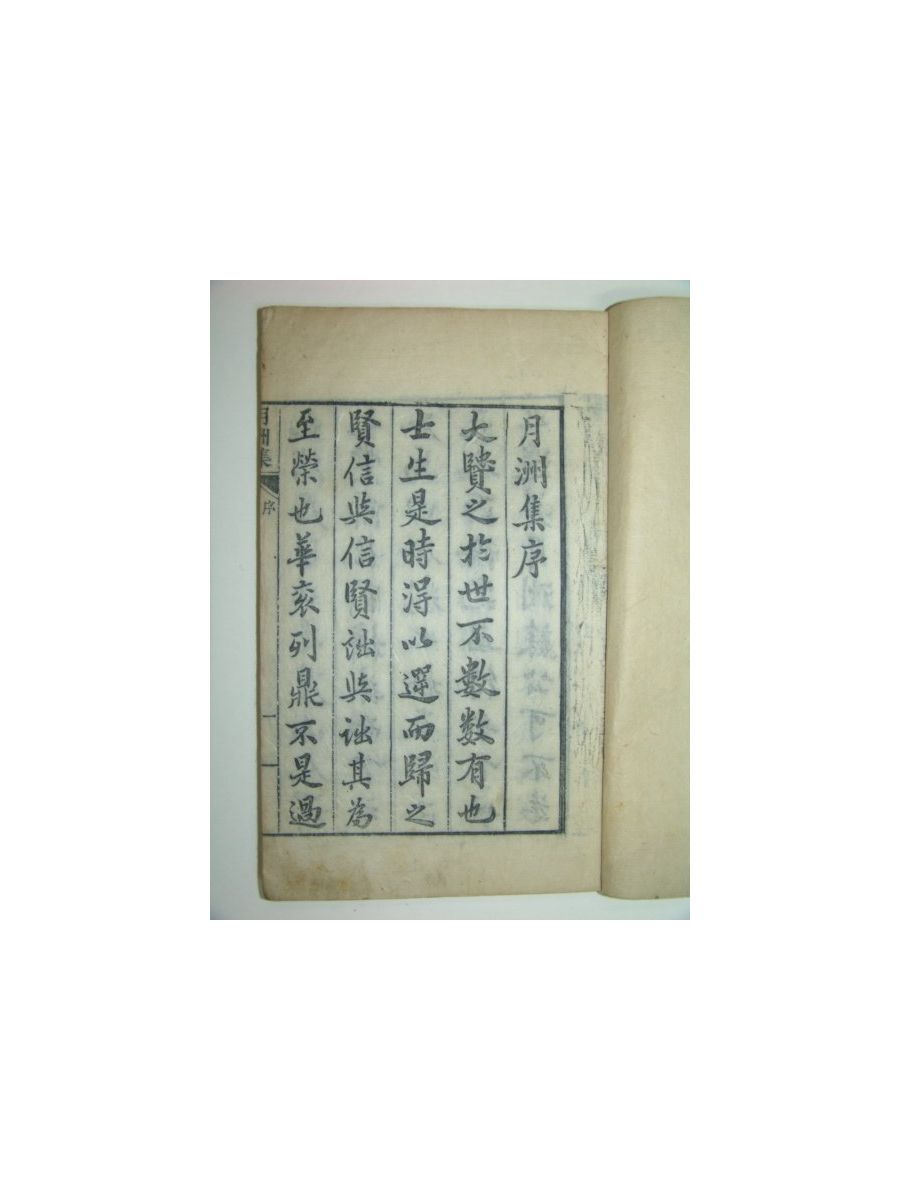 月洲集序
大賢之於世不數數有也
士生是時得以遝而歸之
賢信與信賢詘與詘其為
至榮也華衮列鼎不是過
月洲集
序
一